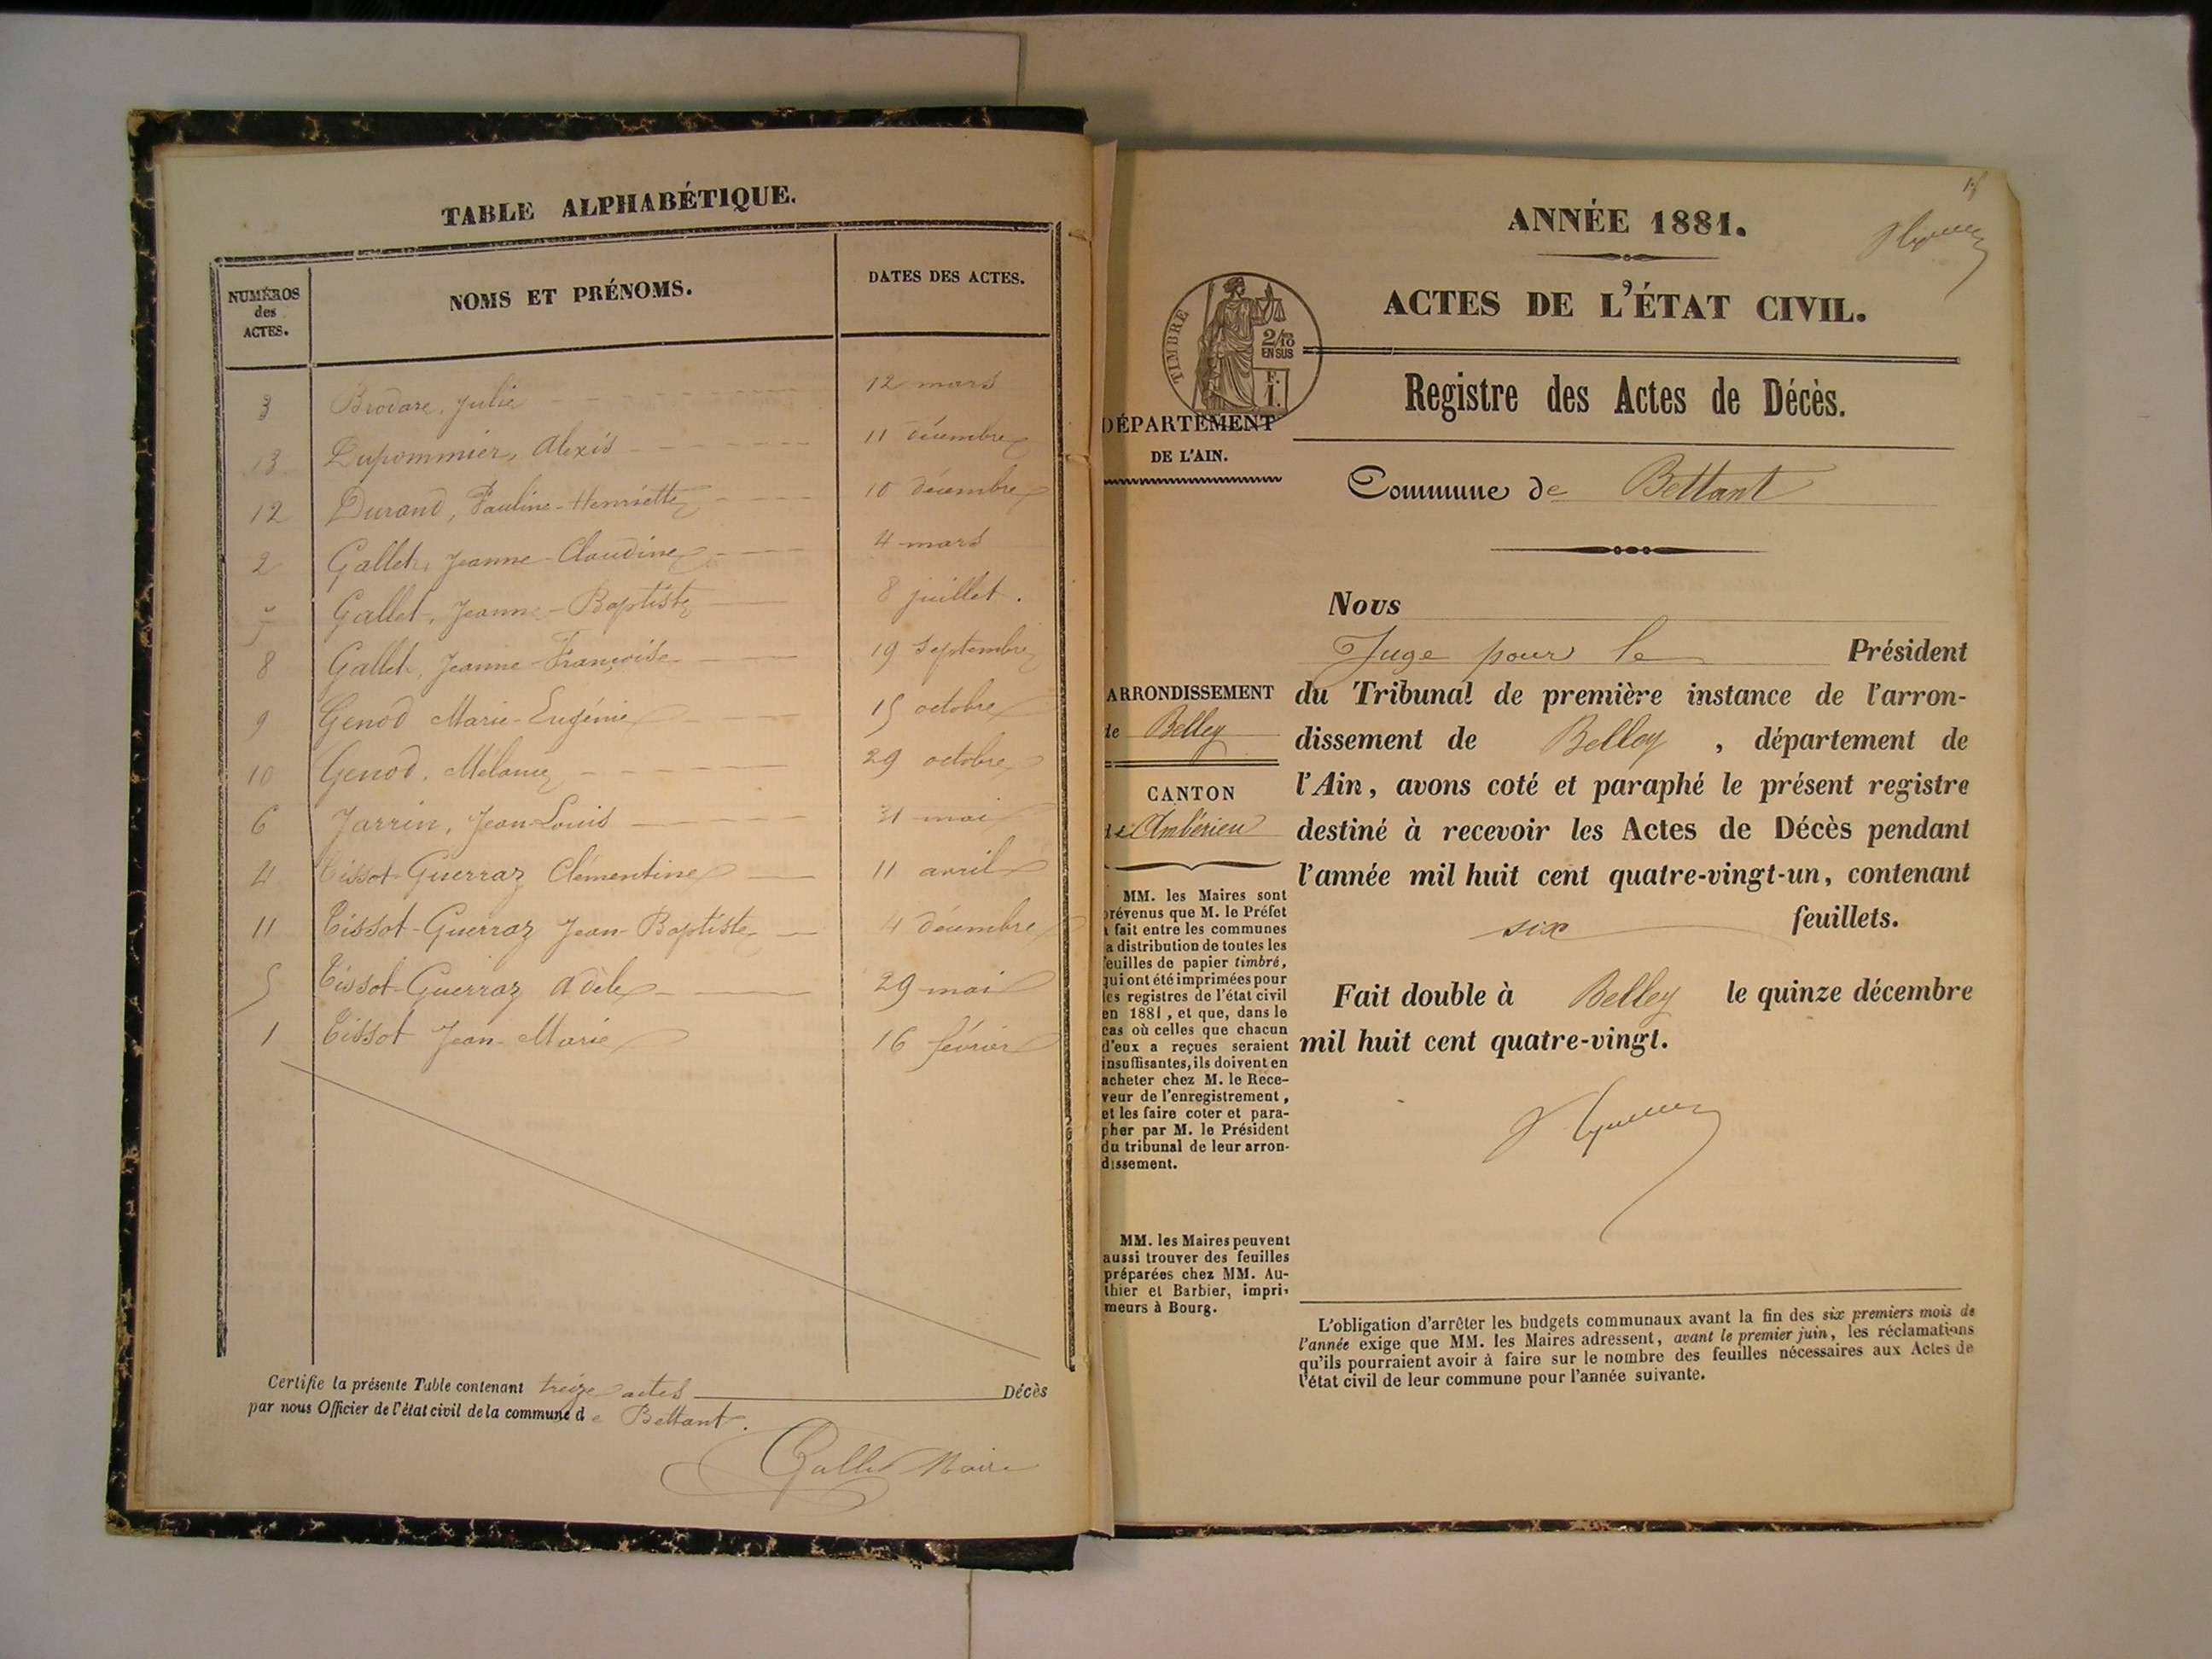 TABLE ALPHABÉTIQUE.
NUMÉROS des ACTES.
NOMS ET PRÉNOMS.
DATES DES ACTES.
3 Brodare, Julie 12 mars
13 Dupommier, Alexis 11 décembre
12 Durand, Pauline-Henriette 10 décembre
2 Gallet, Jeanne-Claudine 4 mars
Gallet, Jeanne-Baptiste 8 juillet.
8 Gallet, Jeanne-Françoise 19 Septembre
9 Genod Marie-Eugénie 15 octobre
10 Genod, Mélanie 29 octobre
6 Jarrin, Jean-Louis 31 mai
4 Tissot-Guerraz Clémentine 11 avril
11 Tissot-Guerraz Jean-Baptiste 4 décembre
5 Tissot-Guerraz Adèle 29 mai
1 Tissot Jean-Marie 16 février
Certifie la présente Table contenant treize actes Décès
par nous Officier de l'état civil de la commune de Bettant.
Gallet Maire
ANNÉE 1881.
ACTES DE L'ÉTAT CIVIL.
TIMBRE
2/10
EN SUS
F.
1.
Registre des Actes de Décès.
DÉPARTEMENT
DE L'AIN.
Commune de Bettant
Nous
Juge pour le Président
du Tribunal de première instance de l'arron-
dissement de Belley, département de
l'Ain, avons coté et paraphé le présent registre
destiné à recevoir les Actes de Décès pendant
l'année mil huit cent quatre-vingt-un, contenant
six feuillets.
Fait double à Belley le quinze décembre
mil huit cent quatre-vingt.
ARRONDISSEMENT
de Belley
CANTON
de Ambérieu
MM. les Maires sont
prévenus que M. le Préfet
a fait entre les communes
la distribution de toutes les
feuilles de papier timbré,
qui ont été imprimées pour
les registres de l'état civil
en 1881, et que, dans le
cas où celles que chacun
d'eux a reçues seraient
insuffisantes, ils doivent en
acheter chez M. le Rece-
veur de l'enregistrement,
et les faire coter et para-
pher par M. le Président
du tribunal de leur arron-
dissement.
MM. les Maires peuvent
aussi trouver des feuilles
préparées chez MM. Au-
thier et Barbier, impri-
meurs à Bourg.
L'obligation d'arrêter les budgets communaux avant la fin des six premiers mois de
l'année exige que MM. les Maires adressent, avant le premier juin, les réclamations
qu'ils pourraient avoir à faire sur le nombre des feuilles nécessaires aux Actes de
l'état civil de leur commune pour l'année suivante.